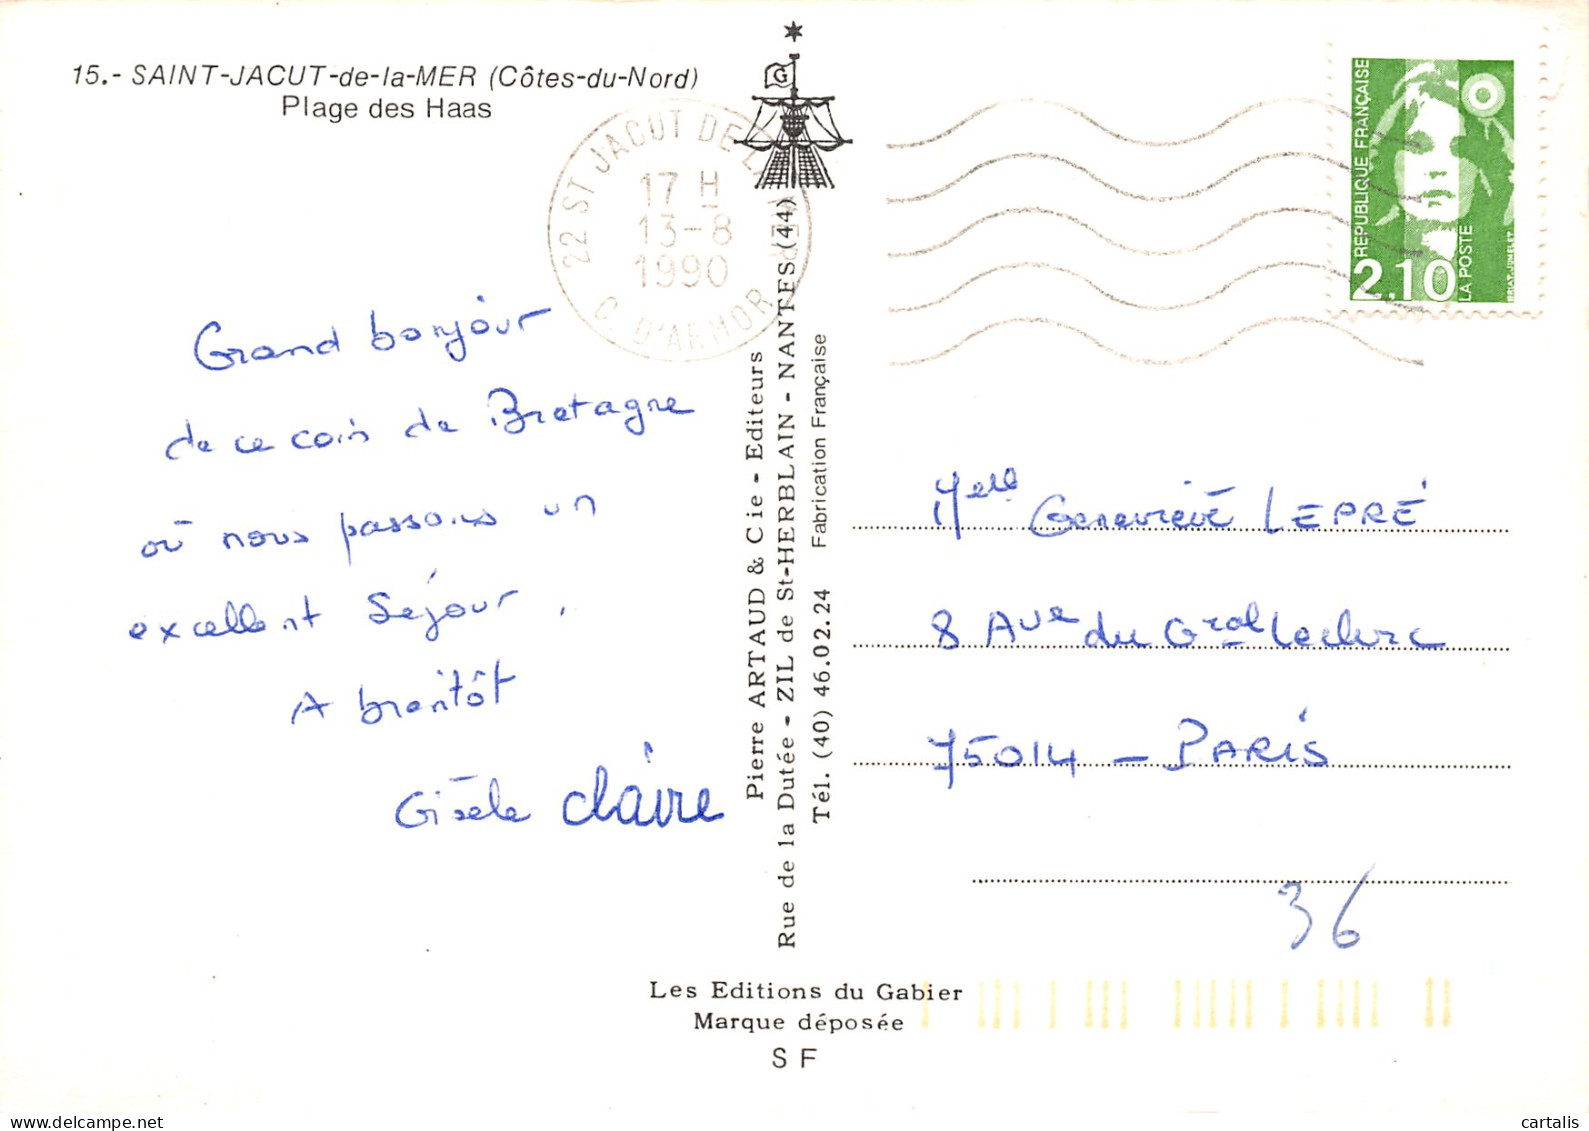 15.- SAINT-JACUT-de-la-MER (Côtes-du-Nord)
Plage des Haas
G
22 ST JACUT DE LA MER
17 H
13-8
1990
C. D'ARMOR
REPUBLIQUE FRANÇAISE
2,10
LA POSTE
BRIAT-JUMELET
Grand bonjour
de ce coin de Bretagne
où nous passons un
excellent séjour.
A bientôt
Gisèle Claire
Pierre ARTAUD & Cie - Editeurs
Rue de la Dutée - ZIL de St-HERBLAIN - NANTES (44)
Tél. (40) 46.02.24 Fabrication Française
Melle Geneviève LEPRÉ
8 Ave du Gral Leclerc
75014 - PARIS
36
Les Editions du Gabier
Marque déposée
S F
delcampe.net
cartalis